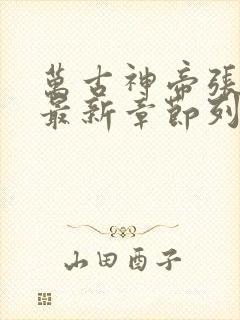 萬古神帝張
最新章節列
山田酉子